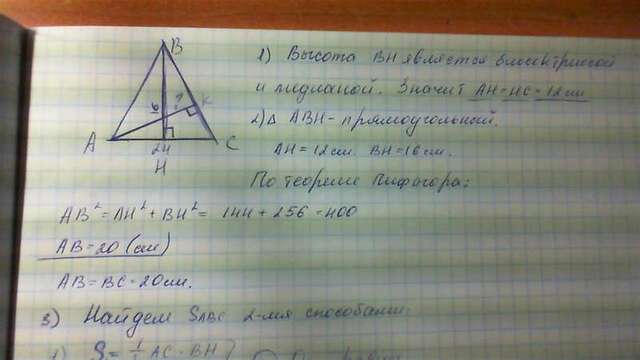 B
1) Высота BH является биссектриссой
и медианой. Значит AH=HC=12см
16 ? K
2) Δ ABH - прямоугольный.
A 24 C
H
AH=12см. BH=16см.
По теореме Пифагора:
AB² = AH² + BH² = 144 + 256 = 400
AB=20 (см)
AB=BC=20см.
3) Найдём SABC 2-мя способами:
1) S = 1/2 AC · BH